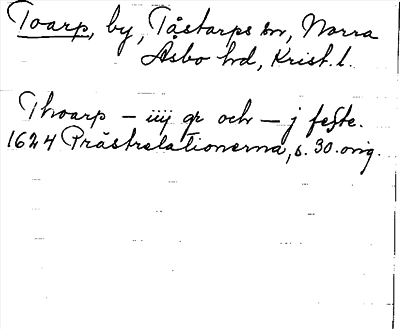 Toarp, by, Tåstarps sn, Norra
Åsbo hd, Krist. l.
Thoarp – iiij gr och – j feste.
1624 Prästrelationerna, s. 30. orig.